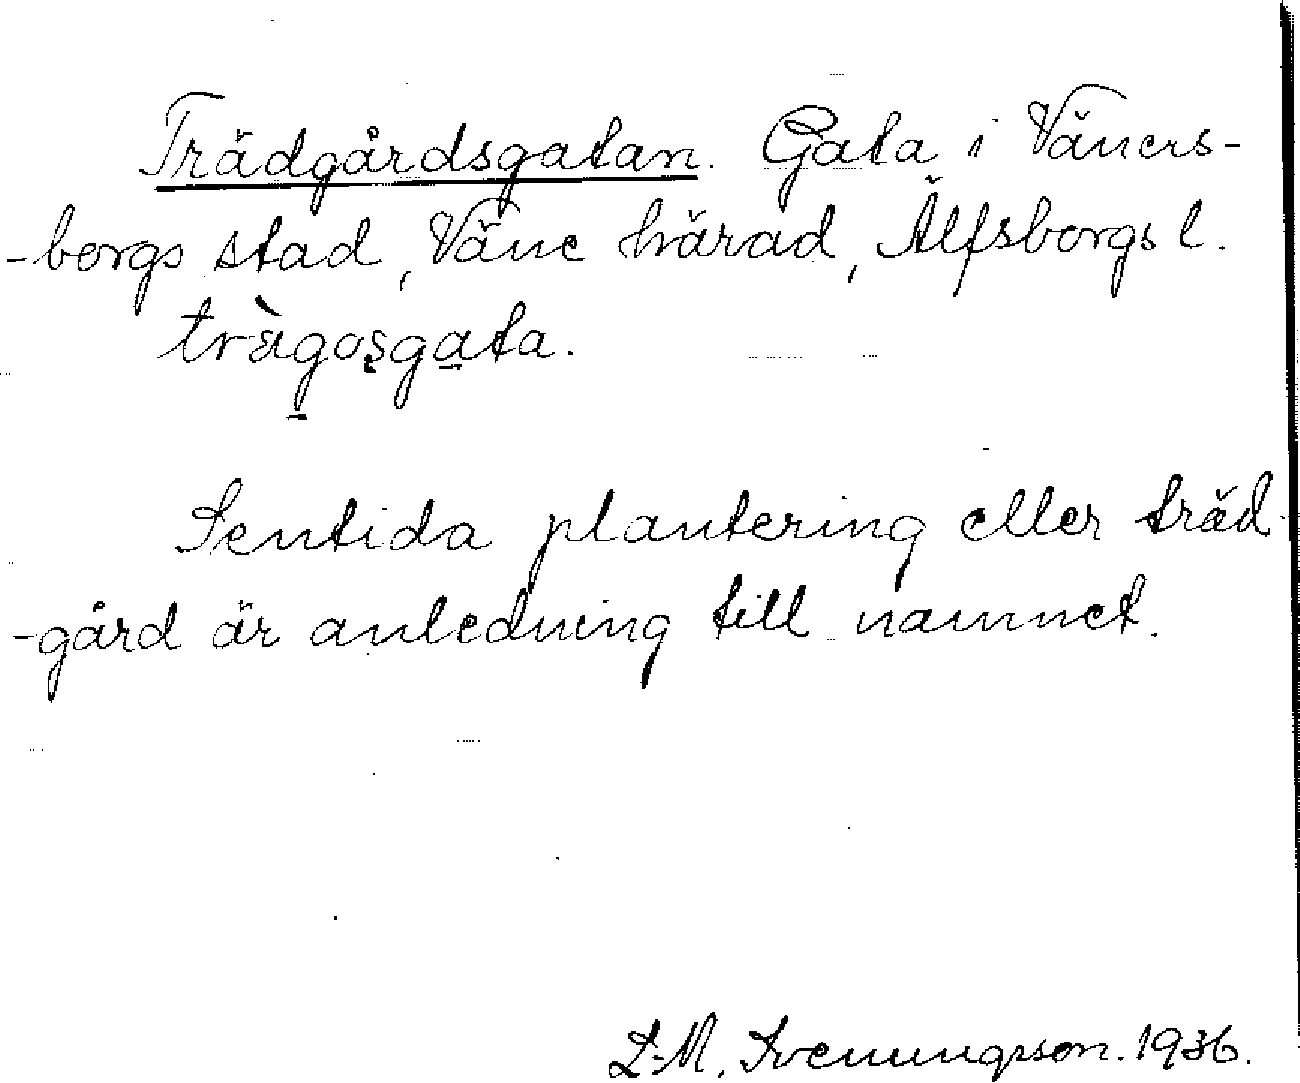 Trädgårdsgatan. Gata i Väners-
-borgs stad, Väne härad, Älfsborgs l.
trägosgata.
Sentida plantering eller träd-
-gård är anledning till namnet.
L-M. Svenungsson. 1936.